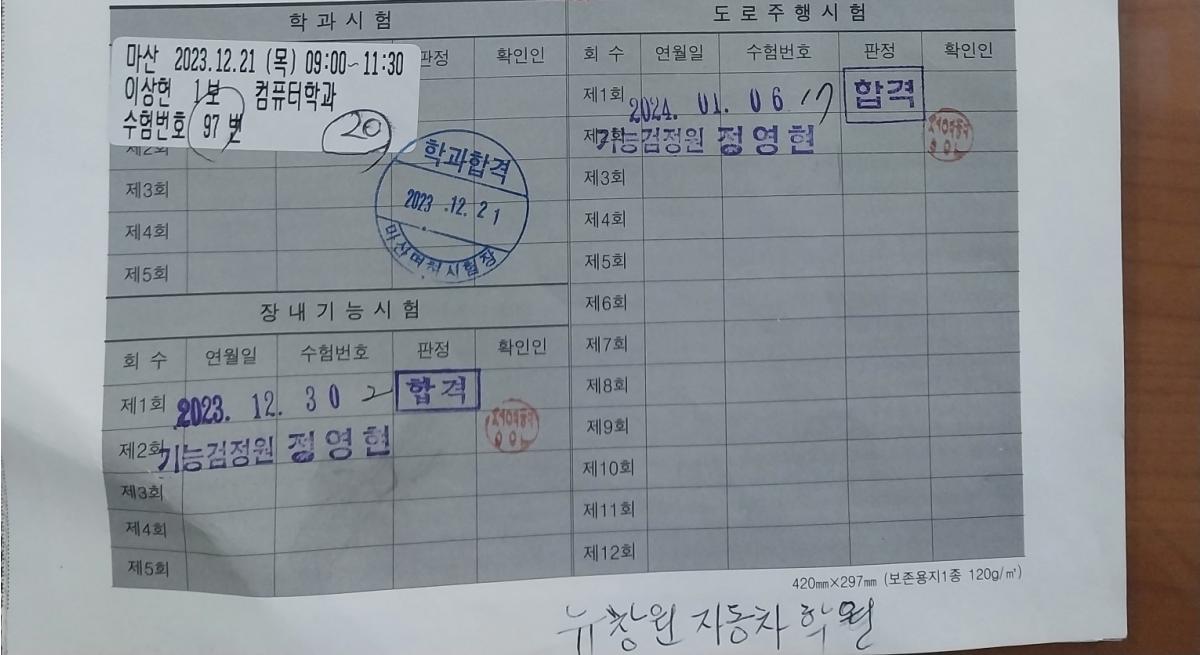 학과시험
마산 2023.12.21 (목) 09:00~11:30
이상헌 1보 컴퓨터학과
수험번호 97 번
20
판정 확인인
제2회
제3회
제4회
제5회
학과합격
2023.12.21
마산면허시험장
장내기능시험
회 수 연월일 수험번호 판정 확인인
제1회 2023. 12. 30 2 합격
제2회 기능검정원 정영현
제3회
제4회
제5회
도로주행시험
회 수 연월일 수험번호 판정 확인인
제1회 2024. 01. 06 17 합격
제2회 기능검정원 정영현
제3회
제4회
제5회
제6회
제7회
제8회
제9회
제10회
제11회
제12회
420㎜×297㎜ (보존용지1종 120g/㎡)
뉴창원 자동차 학원